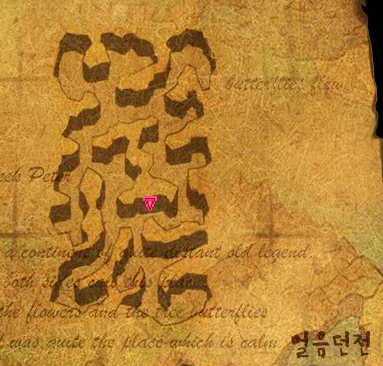 butterflies flew
Peter
a continent of quite distant old legend.
both sides
the flowers and the tree butterflies
was quite the place which is calm
얼음던전